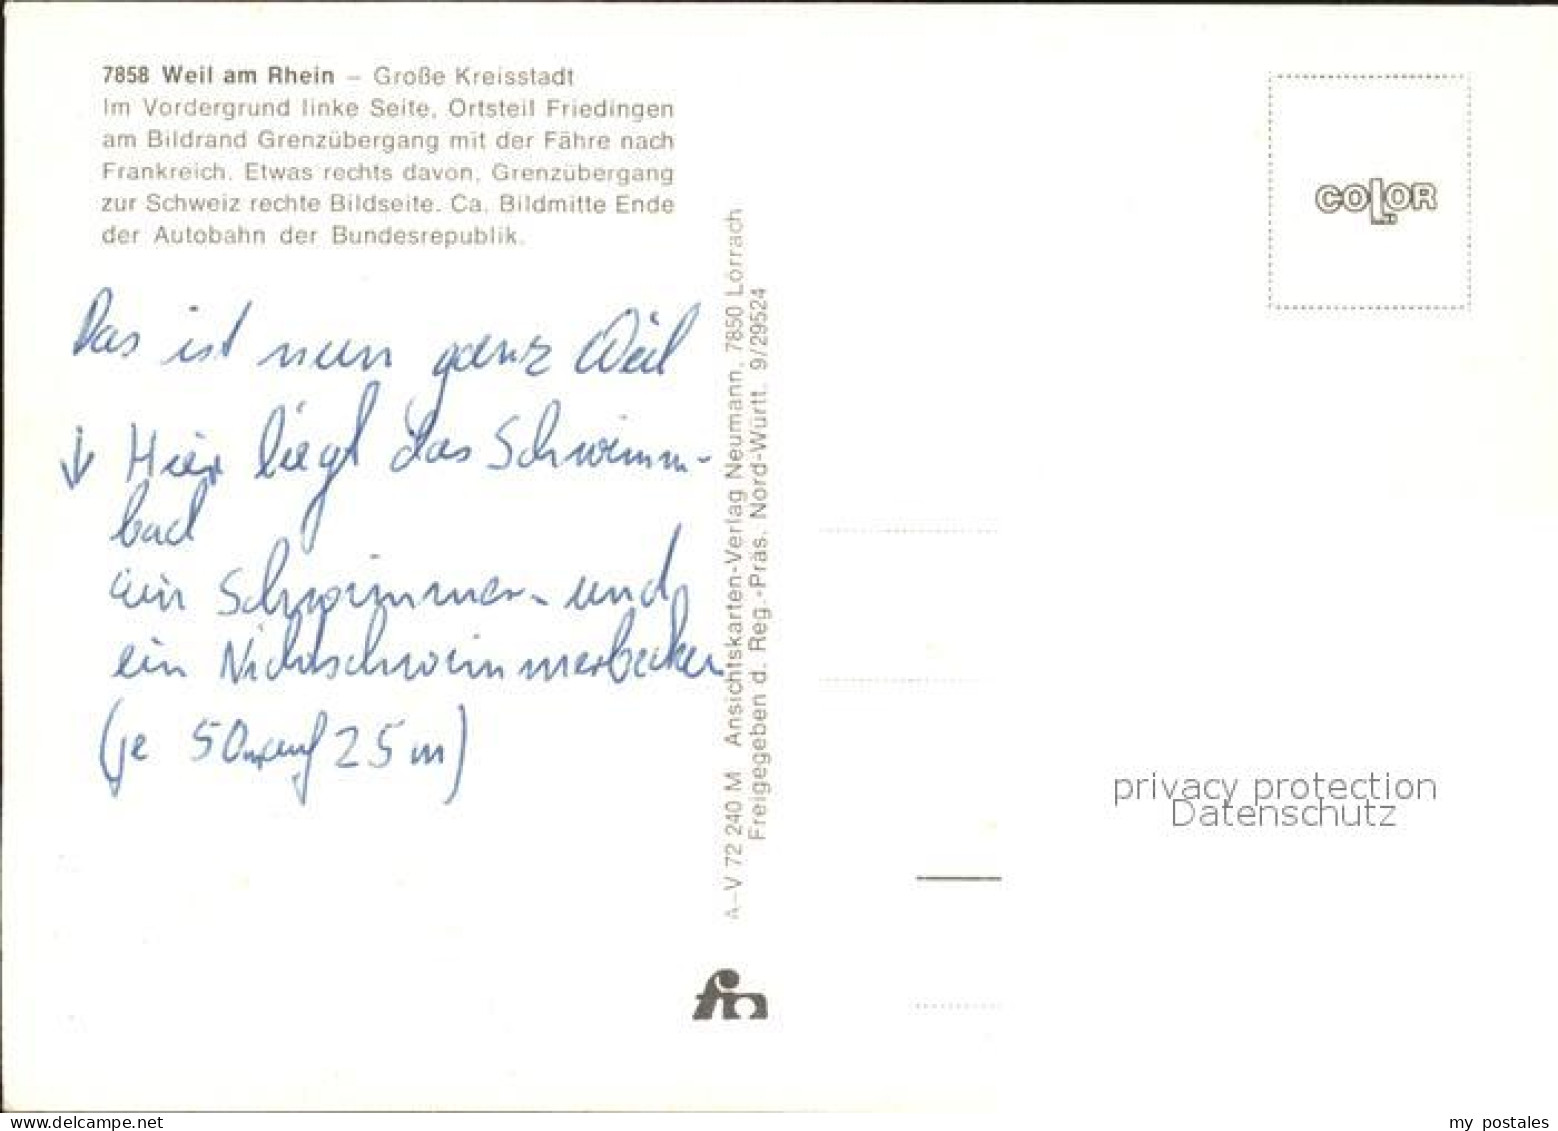 7858 Weil am Rhein – Große Kreisstadt
Im Vordergrund linke Seite, Ortsteil Friedingen
am Bildrand Grenzübergang mit der Fähre nach
Frankreich. Etwas rechts davon, Grenzübergang
zur Schweiz rechte Bildseite. Ca. Bildmitte Ende
der Autobahn der Bundesrepublik.
Das ist nun ganz Weil
↓ Hier liegt das Schwimm-
bad
ein Schwimmer- und
ein Nichtschwimmerbecken
(je 50m auf 25 m)
A–V 72 240 M Ansichtskarten-Verlag Neumann, 7850 Lörrach
Freigegeben d. Reg.-Präs. Nord-Württ. 9/29524
fn
COLOR
privacy protection
Datenschutz
www.delcampe.net
my_postales